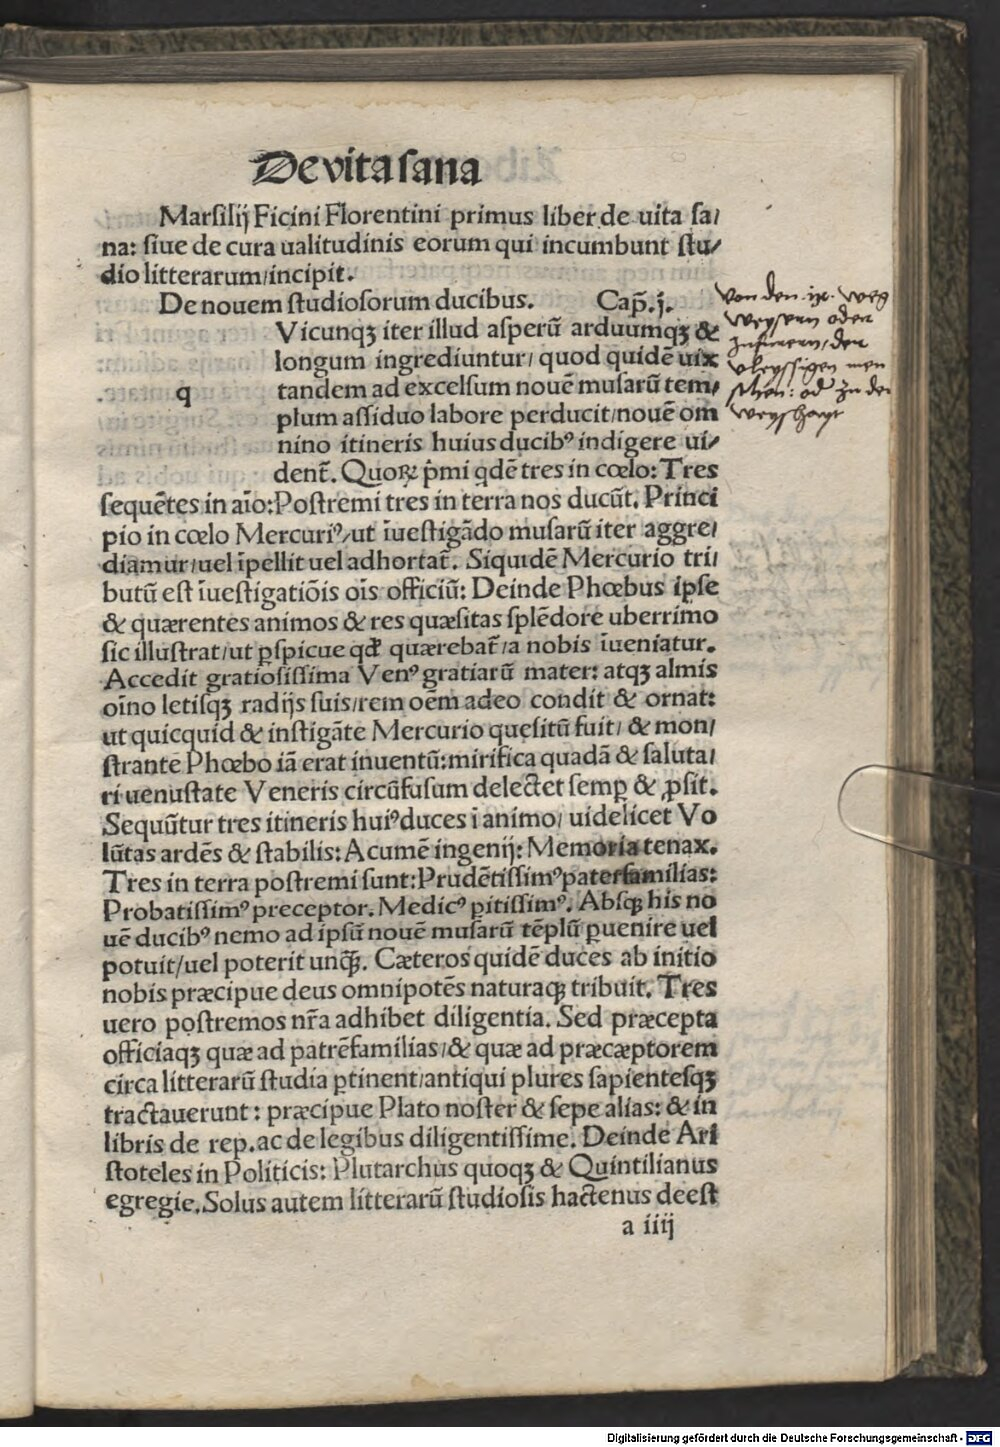 De vita sana
Marsilij Ficini Florentini primus liber de uita sa/
na: siue de cura ualitudinis eorum qui incumbunt stu/
dio litterarum/incipit.
De nouem studiosorum ducibus. Cap̃.j.
Vicunqꝫ iter illud asperũ arduumqꝫ &
longum ingrediuntur/ quod quidẽ uix
q tandem ad excelsum nouẽ musarũ tem/
plum assiduo labore perducit/nouẽ om
nino itineris huius ducibꝰ indigere ui/
dent̃. Quoꝝ p̃mi qdẽ tres in cœlo: Tres
sequẽtes in aĩo: Postremi tres in terra nos ducũt. Princi
pio in cœlo Mercuriꝰ/ut ĩuestigãdo musarũ iter aggre/
diamur/uel ĩpellit uel adhortat̃. Siquidẽ Mercurio tri/
butũ est ĩuestigatiõis oĩs officiũ: Deinde Phœbus ipse
& quærentes animos & res quæsitas splẽdore uberrimo
sic illustrat/ut ꝑspicue qđ quærebat̃/a nobis ĩueniatur.
Accedit gratiosissima Venꝰ gratiarũ mater: atqꝫ almis
oĩno letisqꝫ radijs suis/rem oẽm adeo condit & ornat:
ut quicquid & instigãte Mercurio quesitũ fuit/ & mon/
strante Phœbo iã erat inuentũ: mirifica quadã & saluta/
ri uenustate Veneris circũfusum delectet semꝑ & ꝓsit.
Sequũtur tres itineris huiꝰ duces i animo/ uidelicet Vo
lũtas ardẽs & stabilis: Acumẽ ingenij: Memoria tenax.
Tres in terra postremi sunt: Prudẽtissimꝰ paterfamilias:
Probatissimꝰ preceptor. Medicꝰ ꝑitissimꝰ. Absqꝫ his no
uẽ ducibꝰ nemo ad ipsũ nouẽ musarũ tẽplũ ꝑuenire uel
potuit/uel poterit unqꝫ̃. Cæteros quidẽ duces ab initio
nobis præcipue deus omnipotẽs naturaqꝫ tribuit. Tres
uero postremos nr̃a adhibet diligentia. Sed præcepta
officiaqꝫ quæ ad patrẽfamilias/& quæ ad præcæptorem
circa litterarũ studia ꝑtinent/antiqui plures sapientesqꝫ
tractauerunt: præcipue Plato noster & sepe alias: & in
libris de rep. ac de legibus diligentissime. Deinde Ari
stoteles in Politicis: Plutarchus quoqꝫ & Quintilianus
egregie. Solus autem litterarũ studiosis hactenus deest
a iiij
von den .ix. weg
weysern oder
der
vleyssigen men
schen: od zu der
weyßheyt
Digitalisierung gefördert durch die Deutsche Forschungsgemeinschaft - DFG